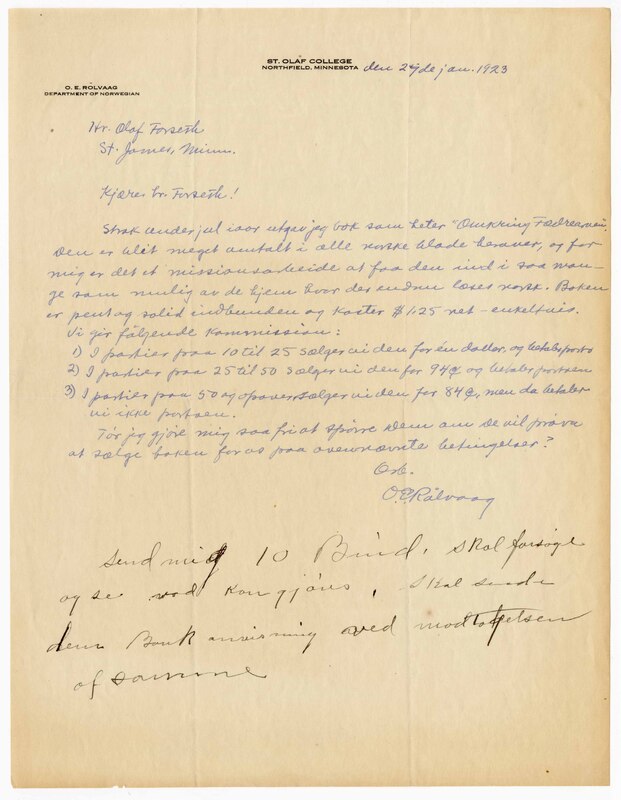 ST. OLAF COLLEGE
NORTHFIELD, MINNESOTA den 24de jan. 1923
O. E. ROLVAAG
DEPARTMENT OF NORWEGIAN
Hr. Olaf Forseth
St. James, Minn.
Kjære hr. Forseth!
Strak under jul iaar utgav jeg bok som heter "Omkring Fædrearven".
Den er blit meget omtalt i alle norske blade herover, og for
mig er det et missionsarbeide at faa den ind i saa man-
ge som mulig av de hjem hvor der endnu læses norsk. Boken
er pent og solid indbunden og koster $1.25 net - enkeltvis.
Vi gir følgende kommission:
1) I partier paa 10 til 25 sælger vi den for én dollar, og betaler porto
2) I partier paa 25 til 50 sælger vi den for 94¢ og betaler portoen
3) I partier paa 50 og opover sælger vi den for 84¢, men da betaler
vi ikke portoen.
Tør jeg gjøre mig saa fri at spørre Dem om De vil prøva
at sælge boken for os paa ovennævnte betingelser?
Erb.
O.E. Rølvaag
Send mig 10 Bind. skal forsøge
og se vad kan gjøres, skal sende
dem Bank anvisning ved modtagelsen
af samme